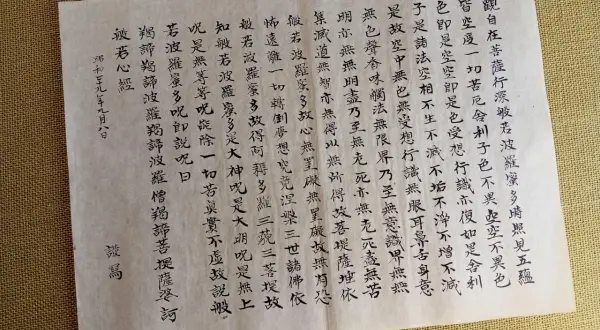 觀自在菩薩行深般若波羅蜜多時照見五蘊
皆空度一切苦厄舍利子色不異空空不異色
色即是空空即是色受想行識亦復如是舍利
子是諸法空相不生不滅不垢不淨不增不減
是故空中無色無受想行識無眼耳鼻舌身意
無色聲香味觸法無眼界乃至無意識界無無
明亦無無明盡乃至無老死亦無老死盡無苦
集滅道無智亦無得以無所得故菩提薩埵依
般若波羅蜜多故心無罣礙無罣礙故無有恐
怖遠離一切顛倒夢想究竟涅槃三世諸佛依
般若波羅蜜多故得阿耨多羅三藐三菩提故
知般若波羅蜜多是大神呪是大明呪是無上
呪是無等等呪能除一切苦真實不虛故說般
若波羅蜜多呪即說呪曰
羯諦羯諦波羅羯諦波羅僧羯諦菩提薩婆訶
般若心經
昭和 九年九月八日
謹寫